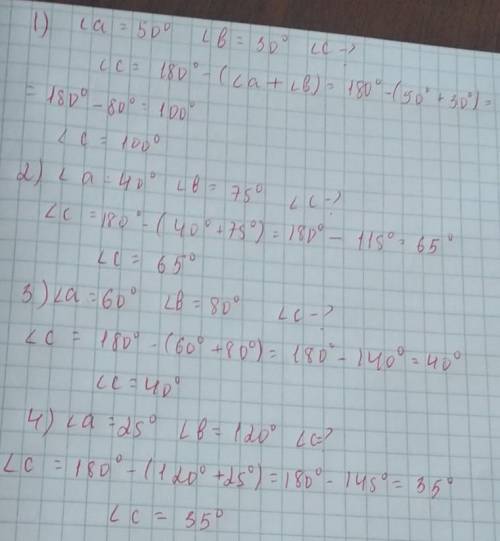 1) ∠a = 50° ∠b = 30° ∠c - ?
∠c = 180° - (∠a + ∠b) = 180° - (50° + 30°) =
= 180° - 80° = 100°
∠c = 100°
2) ∠a = 40° ∠b = 75° ∠c - ?
∠c = 180° - (40° + 75°) = 180° - 115° = 65°
∠c = 65°
3) ∠a = 60° ∠b = 80° ∠c - ?
∠c = 180° - (60° + 80°) = 180° - 140° = 40°
∠c = 40°
4) ∠a = 25° ∠b = 120° ∠c = ?
∠c = 180° - (120° + 25°) = 180° - 145° = 35°
∠c = 35°